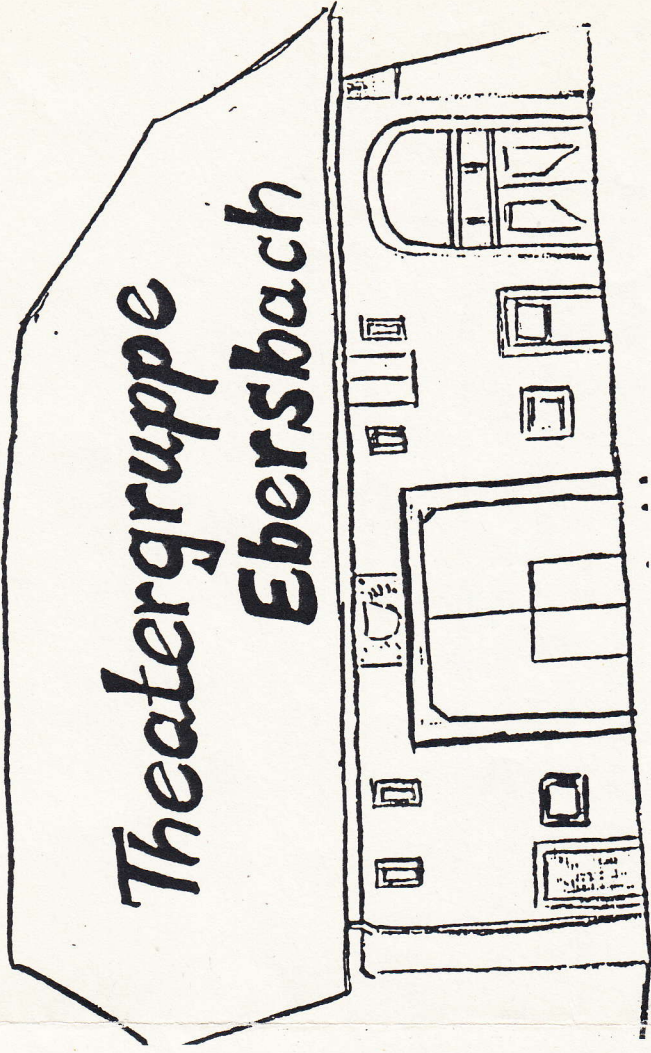 Theatergruppe
Ebersbach